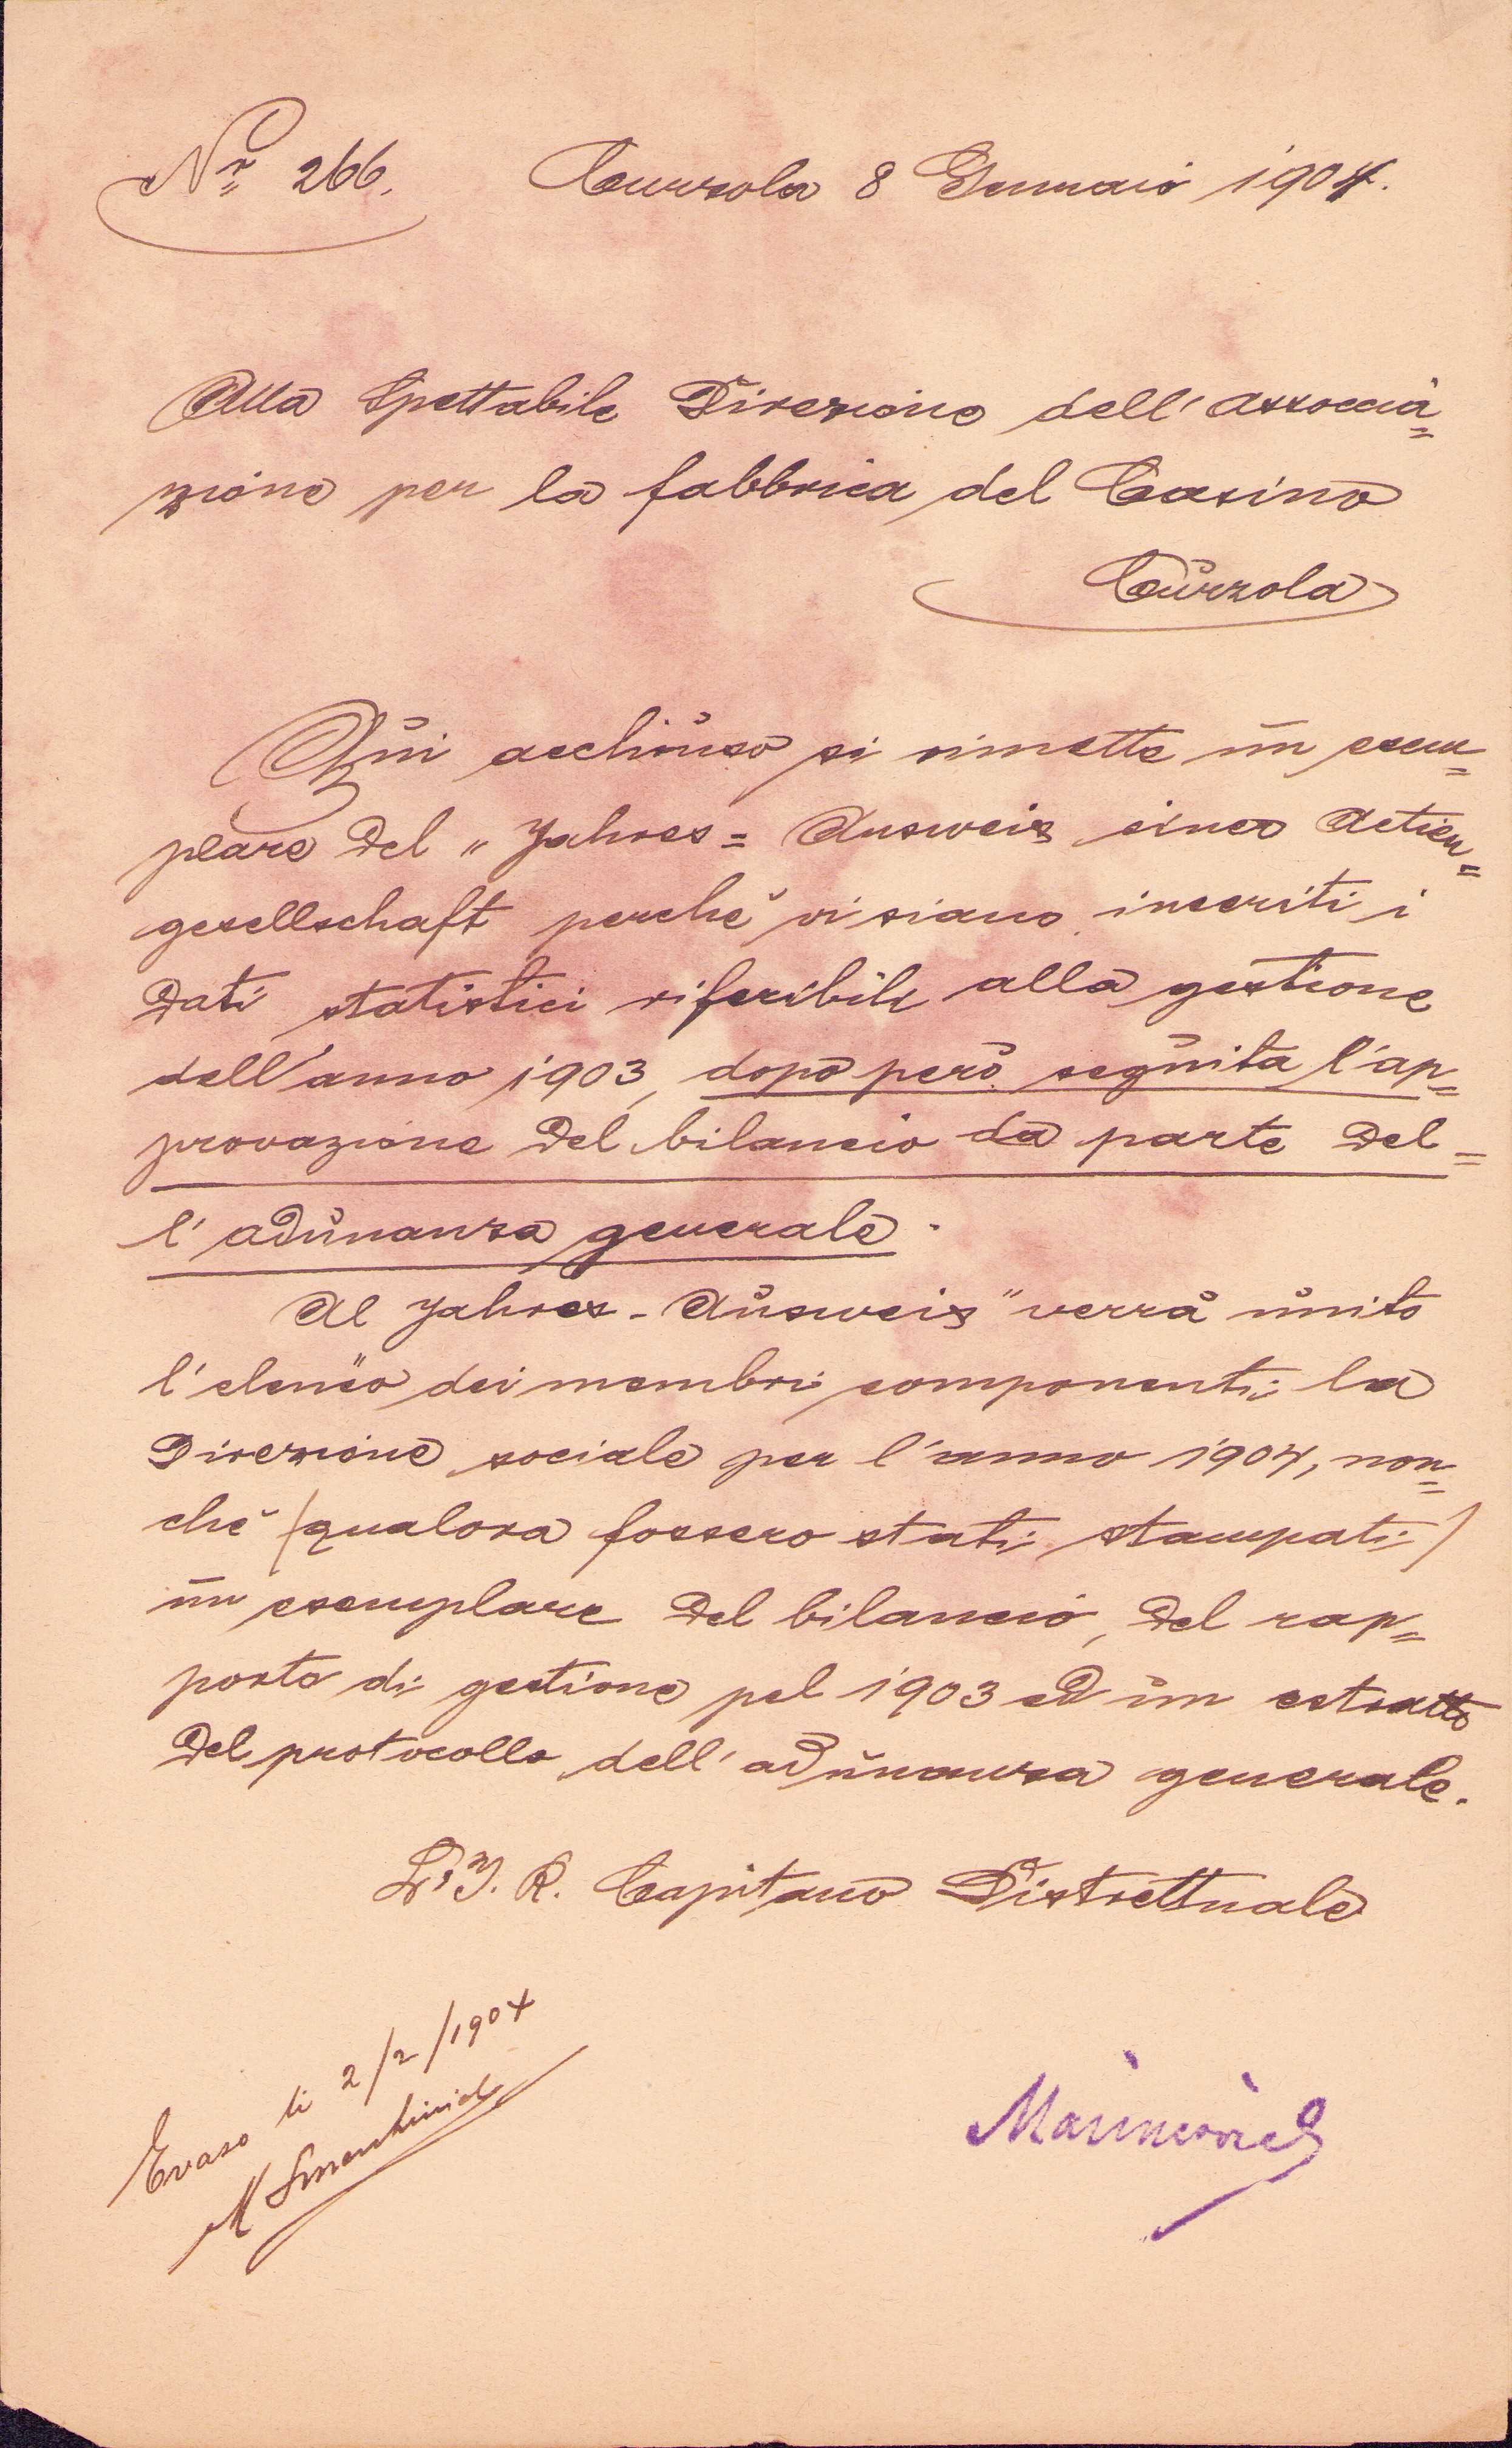 Nr. 266.
Curzola 8 Gennaio 1904.
Alla Spettabile Direzione dell' associa=
zione per la fabbrica del Casino
Curzola
Qui acchiuso si rimette un esem=
plare del „Jahres = Ausweis einer Actien=
gesellschaft perchè vi siano inseriti i
dati statistici riferibili alla gestione
dell'anno 1903, dopo però seguita l'ap=
provazione del bilancio da parte del=
l' adunanza generale.
Al Jahres - Ausweis" verrà unito
l'elenco dei membri componenti la
Direzione sociale per l'anno 1904, non=
chè (qualora fossero stati stampati)
un esemplare del bilancio, del rap=
porto di gestione pel 1903 ed un estratto
del protocollo dell' adunanza generale.
L'I. R. Capitano Distrettuale
Evaso li 2/2/1904
M
Marincovich